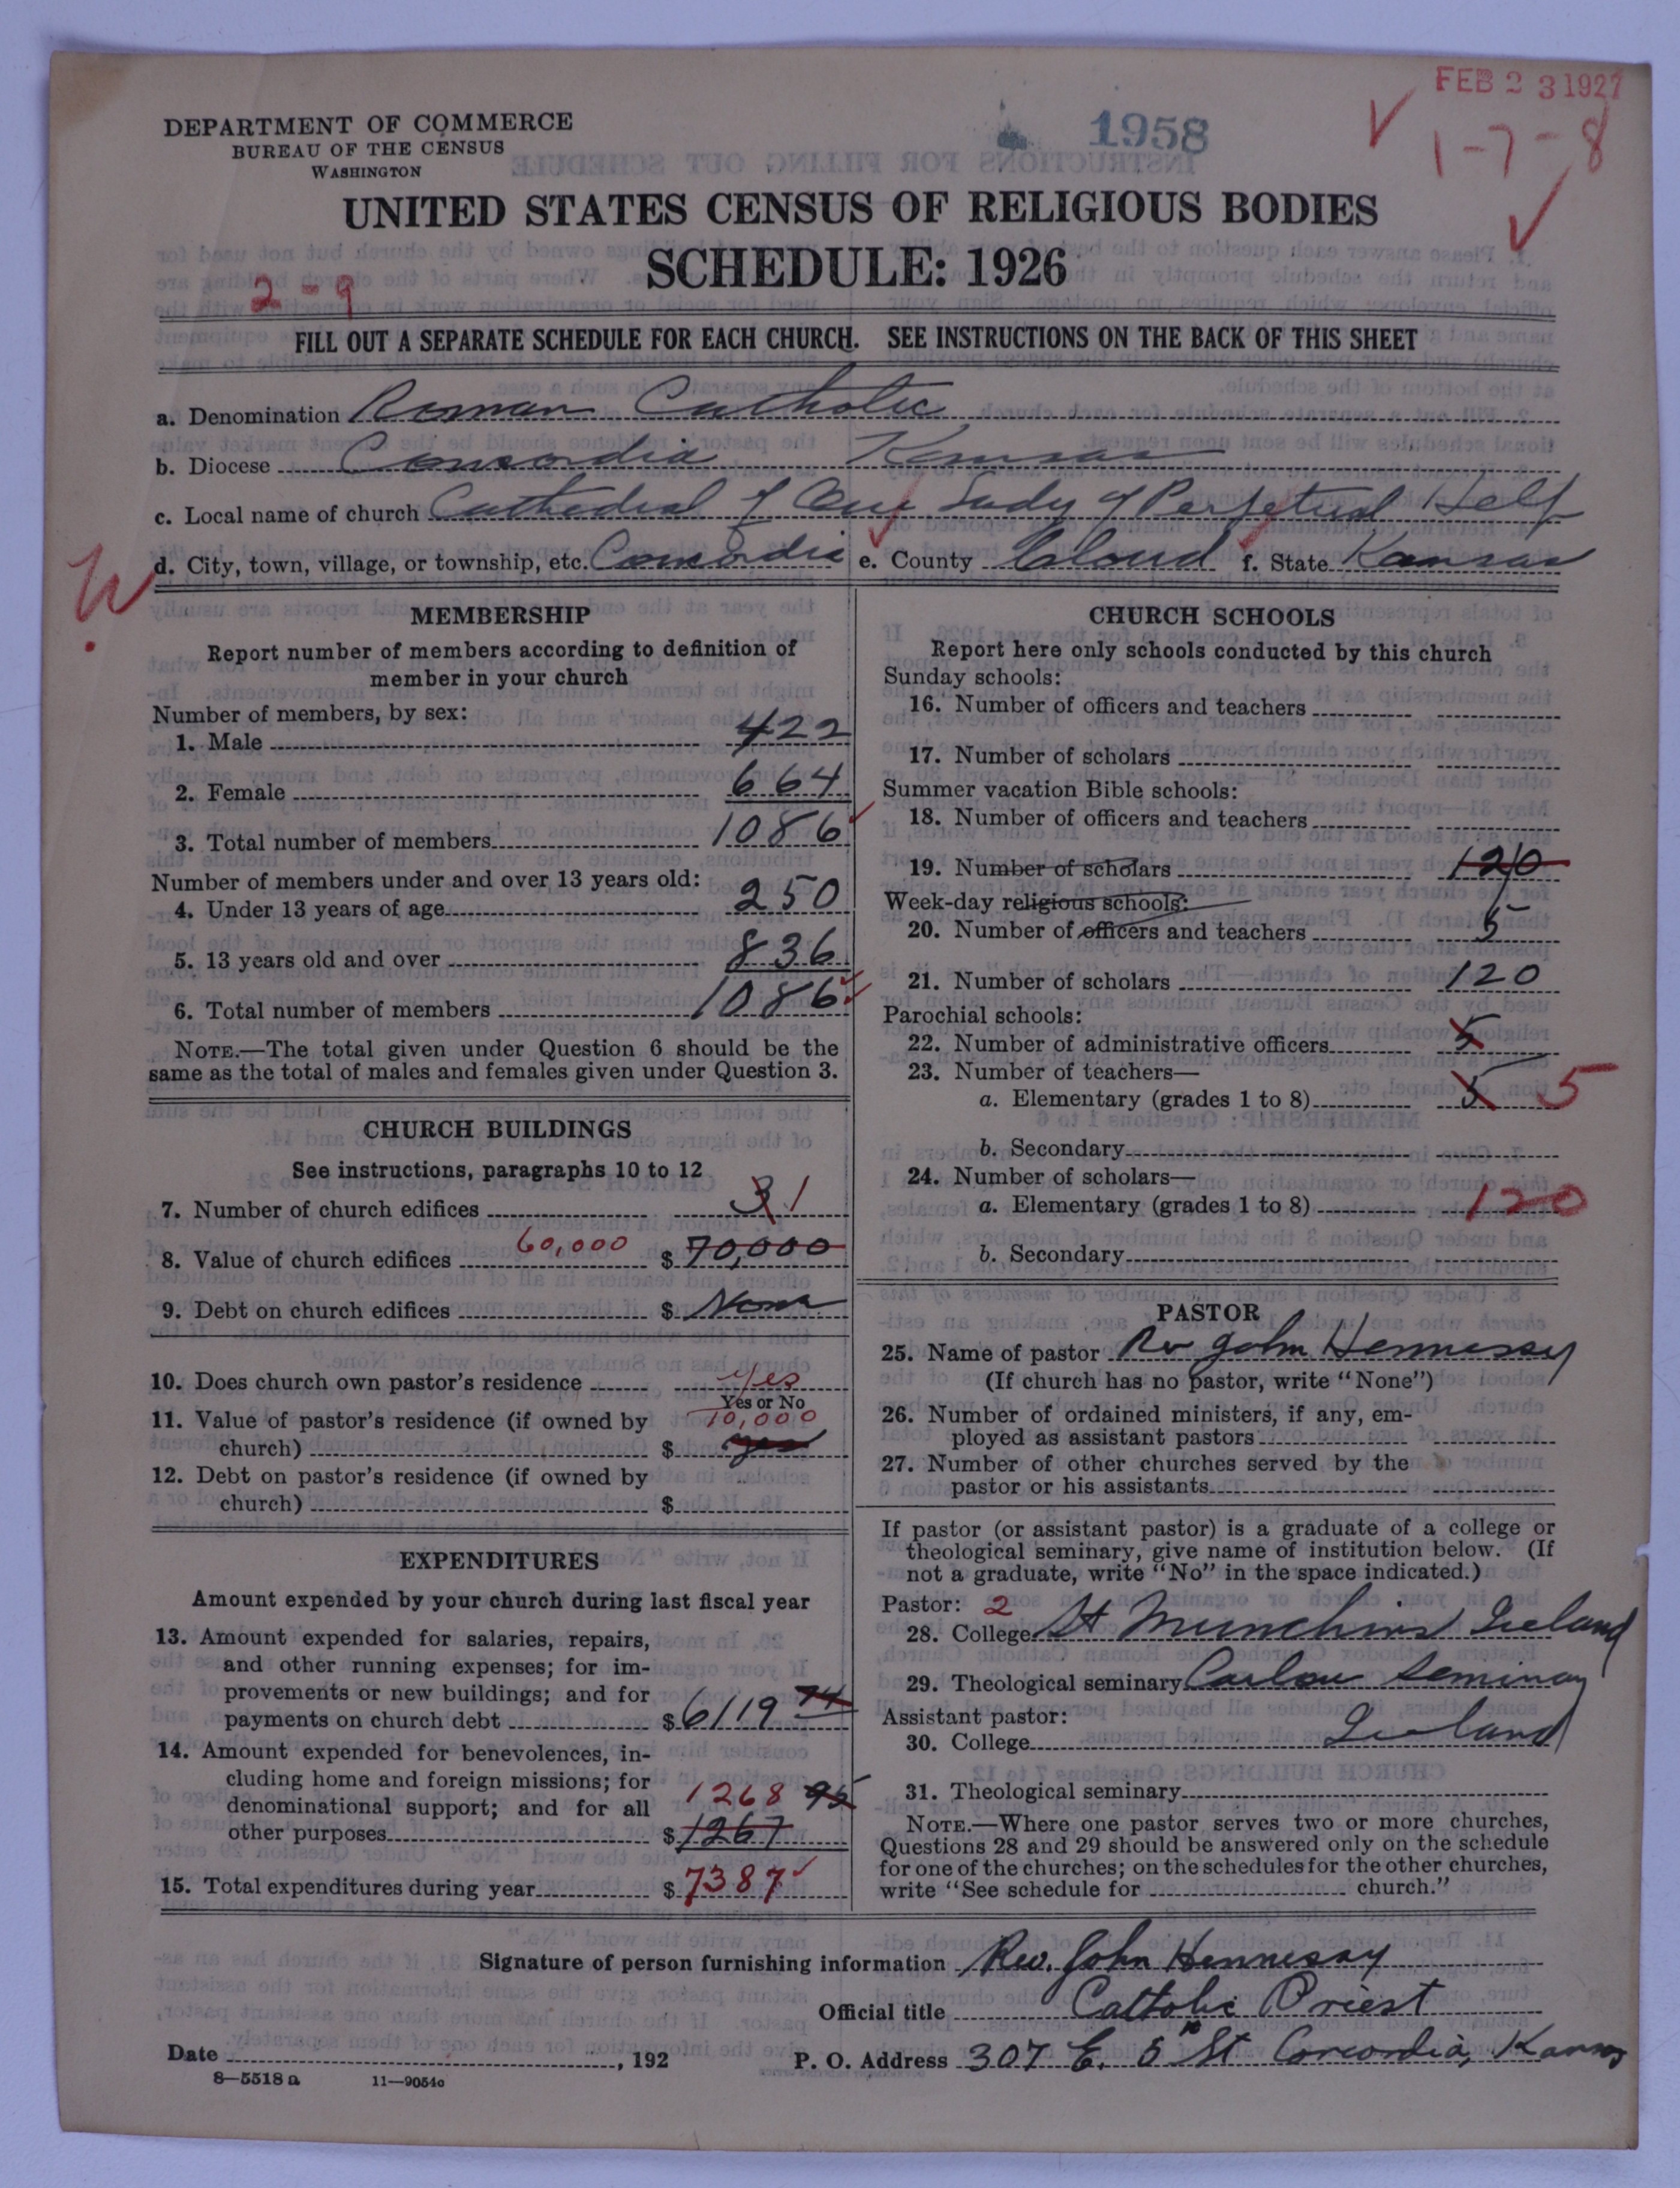 FEB 23 1927
1958
1-7-8
DEPARTMENT OF COMMERCE
BUREAU OF THE CENSUS
WASHINGTON
UNITED STATES CENSUS OF RELIGIOUS BODIES
SCHEDULE: 1926
2-9
FILL OUT A SEPARATE SCHEDULE FOR EACH CHURCH. SEE INSTRUCTIONS ON THE BACK OF THIS SHEET
a. Denomination Roman Catholic
b. Diocese Concordia Kansas
c. Local name of church Cathedral of Our Lady of Perpetual Help
d. City, town, village, or township, etc. Concordia e. County Cloud f. State Kansas
MEMBERSHIP
Report number of members according to definition of
member in your church
Number of members, by sex:
1. Male 422
2. Female 664
3. Total number of members 1086
Number of members under and over 13 years old:
4. Under 13 years of age 250
5. 13 years old and over 836
6. Total number of members 1086
NOTE.—The total given under Question 6 should be the
same as the total of males and females given under Question 3.
CHURCH BUILDINGS
See instructions, paragraphs 10 to 12
7. Number of church edifices 3 1
8. Value of church edifices 60,000 $ 70,000
9. Debt on church edifices $ None
10. Does church own pastor's residence Yes
Yes or No
11. Value of pastor's residence (if owned by 10,000
church) $ yes
12. Debt on pastor's residence (if owned by
church) $
EXPENDITURES
Amount expended by your church during last fiscal year
13. Amount expended for salaries, repairs,
and other running expenses; for im-
provements or new buildings; and for
payments on church debt $ 6119 74
14. Amount expended for benevolences, in-
cluding home and foreign missions; for
denominational support; and for all 1268 95
other purposes $ 1267
15. Total expenditures during year $ 7387
CHURCH SCHOOLS
Report here only schools conducted by this church
Sunday schools:
16. Number of officers and teachers
17. Number of scholars
Summer vacation Bible schools:
18. Number of officers and teachers
19. Number of scholars 120
Week-day religious schools:
20. Number of officers and teachers 5
21. Number of scholars 120
Parochial schools:
22. Number of administrative officers 5
23. Number of teachers—
a. Elementary (grades 1 to 8) 5 5
b. Secondary
24. Number of scholars—
a. Elementary (grades 1 to 8) 120
b. Secondary
PASTOR
25. Name of pastor Rev John Hennessy
(If church has no pastor, write "None")
26. Number of ordained ministers, if any, em-
ployed as assistant pastors
27. Number of other churches served by the
pastor or his assistants
If pastor (or assistant pastor) is a graduate of a college or
theological seminary, give name of institution below. (If
not a graduate, write "No" in the space indicated.)
Pastor: 2
28. College St Munchins Ireland
29. Theological seminary Carlow Seminary
Assistant pastor: Ireland
30. College
31. Theological seminary
NOTE.—Where one pastor serves two or more churches,
Questions 28 and 29 should be answered only on the schedule
for one of the churches; on the schedules for the other churches,
write "See schedule for church."
Signature of person furnishing information Rev. John Hennessy
Official title Catholic Priest
Date , 192 P. O. Address 307 E. 5th St Concordia, Kansas
8—5518a 11—9054c